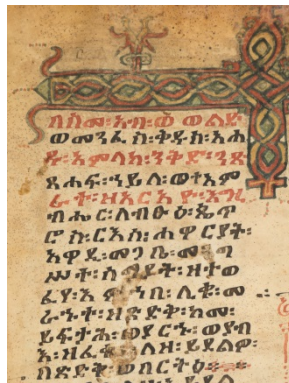 በስመ፡አብ፡ወ ወልድ፡
ወመንፈ ስ፡ቅዱስ፡አሐ
ዱ፡አምላክ፡ንቅድ፡ንጽ
ጸሐፍ፡ኀይለ፡ወተአም
ራት፡ዘአርአ ዮ፡እግዚ
ብሔር፡ለብፁዕ፡ጴጥ
ሮስ፡ርእሰ፡ሐዋርያት፡
አዋዲ፡መጋቤ፡
ሰማያት፡ዘተወ
ፈየ፡እም ኀበ፡ሊቁ፡መ
ራኁተ፡ዘጽድቅ፡ከመ፡
ይፍታሕ፡ወያርኁ፡ወያብ
እ፡ለዘ፡ይደልዎ፡
በጽድቅ፡ወበርትዕ፡